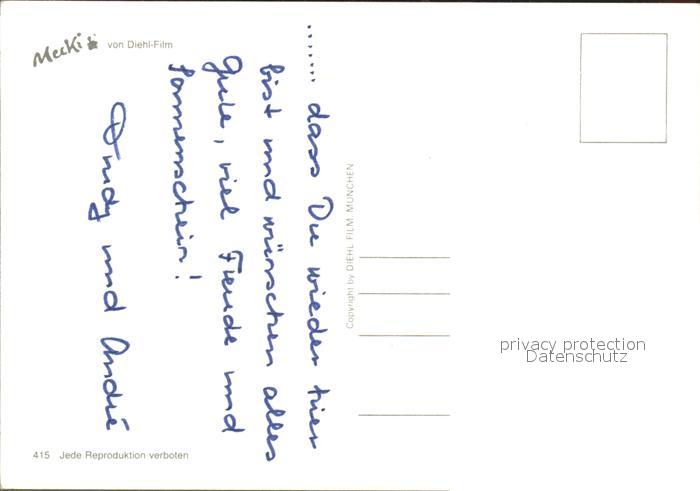 Mecki von Diehl-Film
........ dass Du wieder hier
bist und wünschen alles
Gute, viel Freude und
Sonnenschein!
Trudy und André
Copyright by DIEHL FILM, MÜNCHEN
privacy protection
Datenschutz
415 Jede Reproduktion verboten